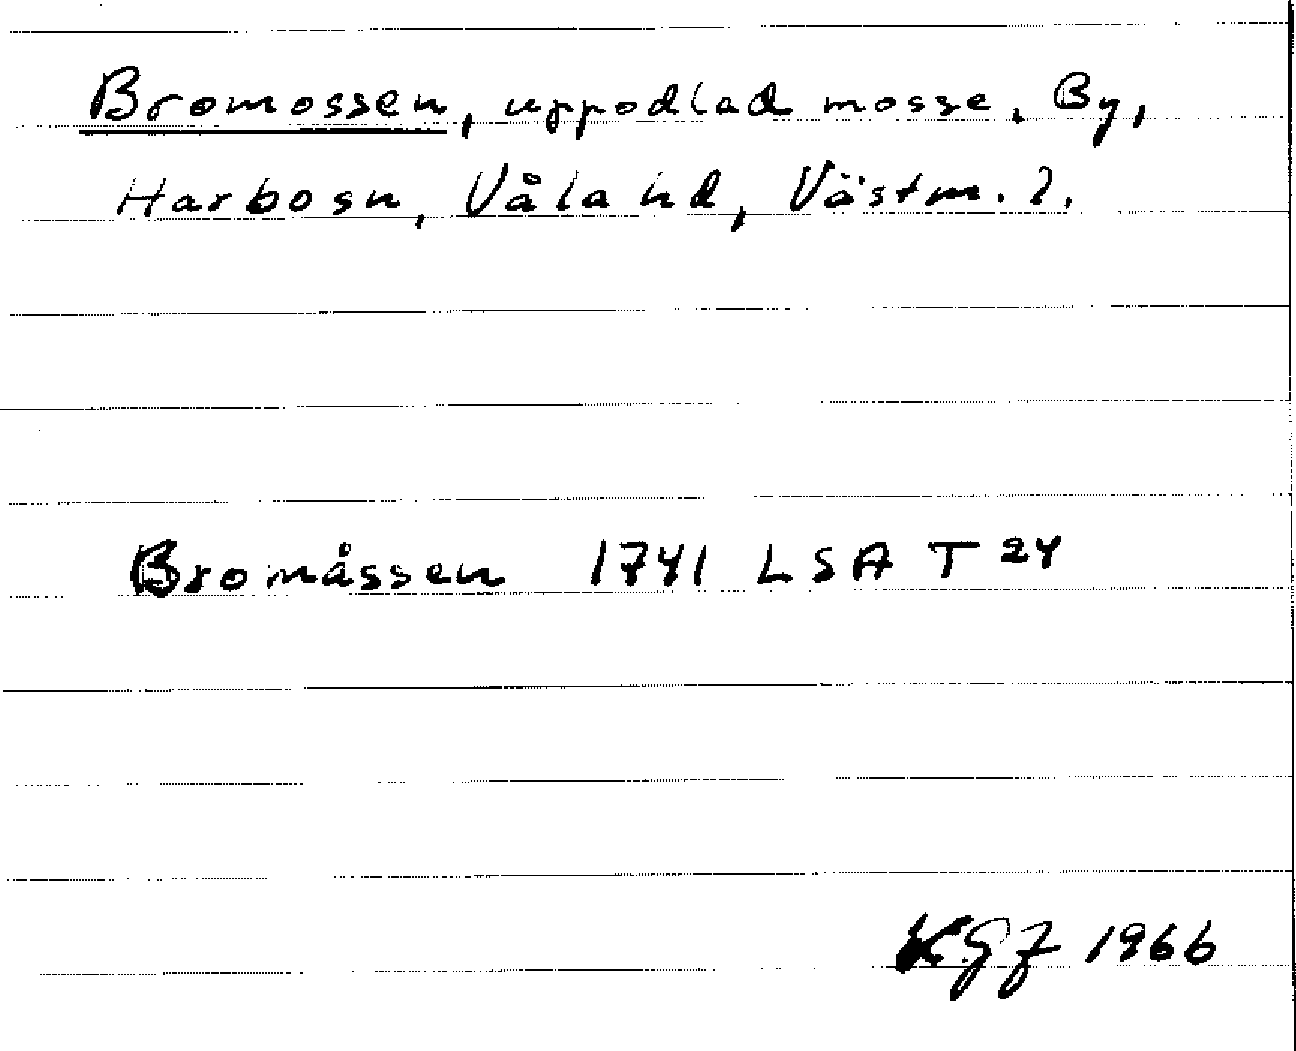 Bromossen, uppodlad mosse, By,
Harbosn, Våla hd, Västm. l.
Bromåssen 1741 LSA T 24
KGJ 1966